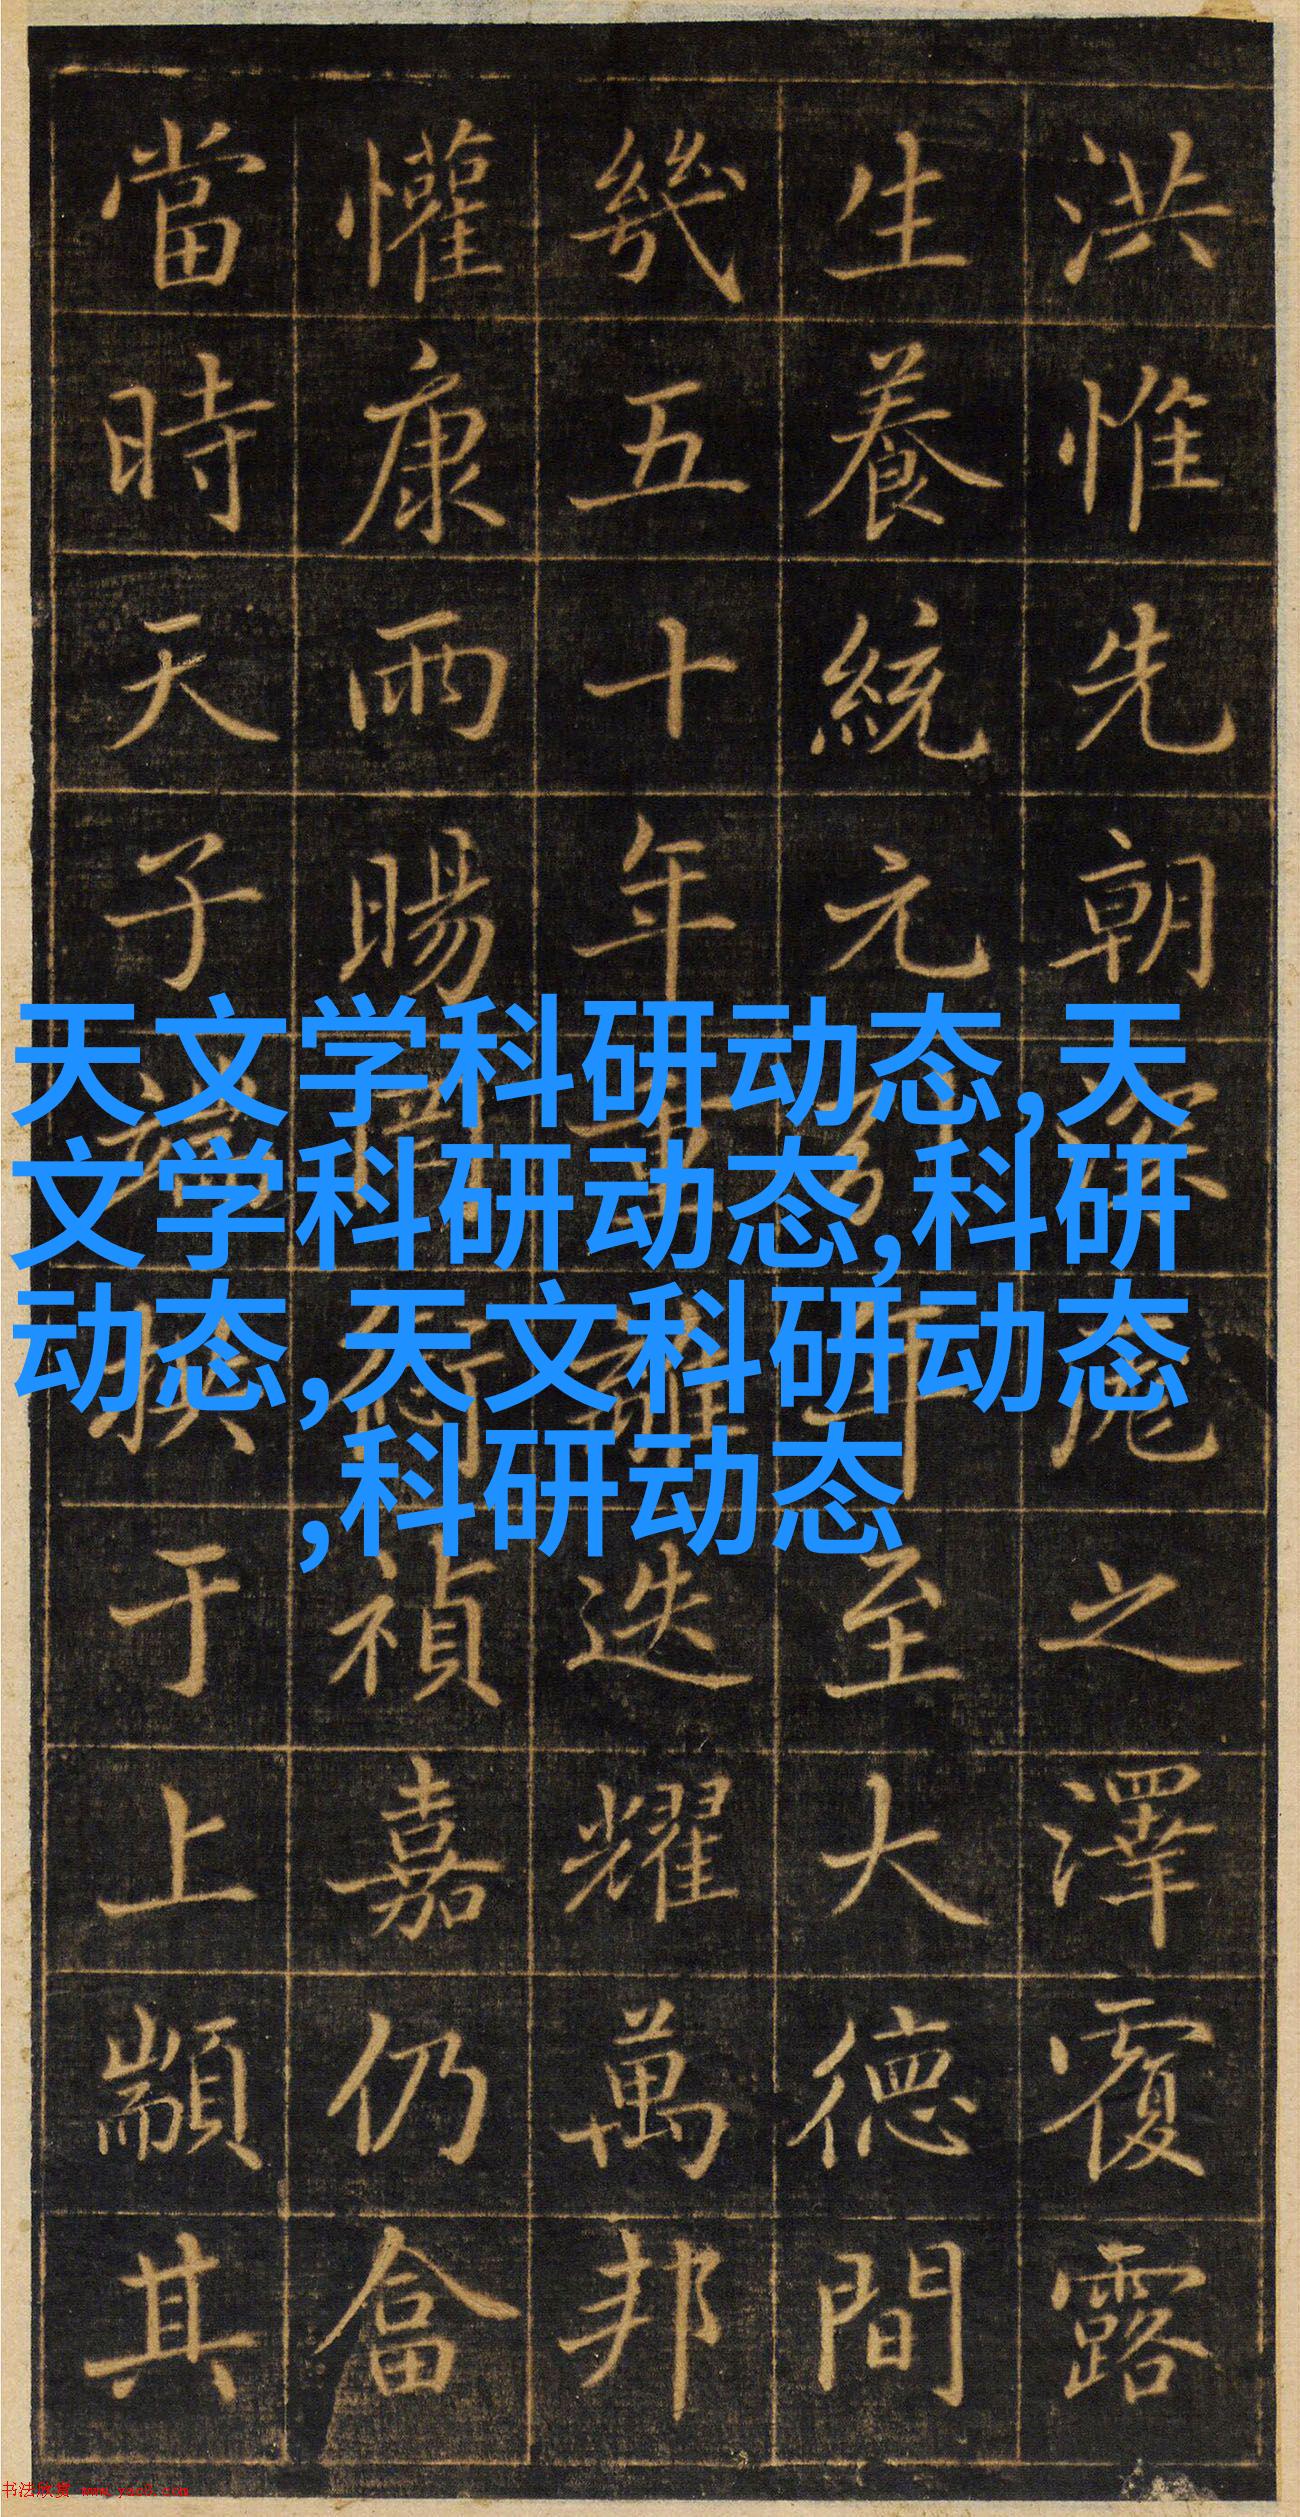 洪惟先朝之澤覆露
生養統元年至大德間
幾五十年重離迭耀萬邦
懽康雨暘禎嘉仍畣
當時天子于上顒其
天文学科研动态,天
文学科研动态,科研
动态,天文科研动态
,科研动态
书法欣赏 www.yac8.com